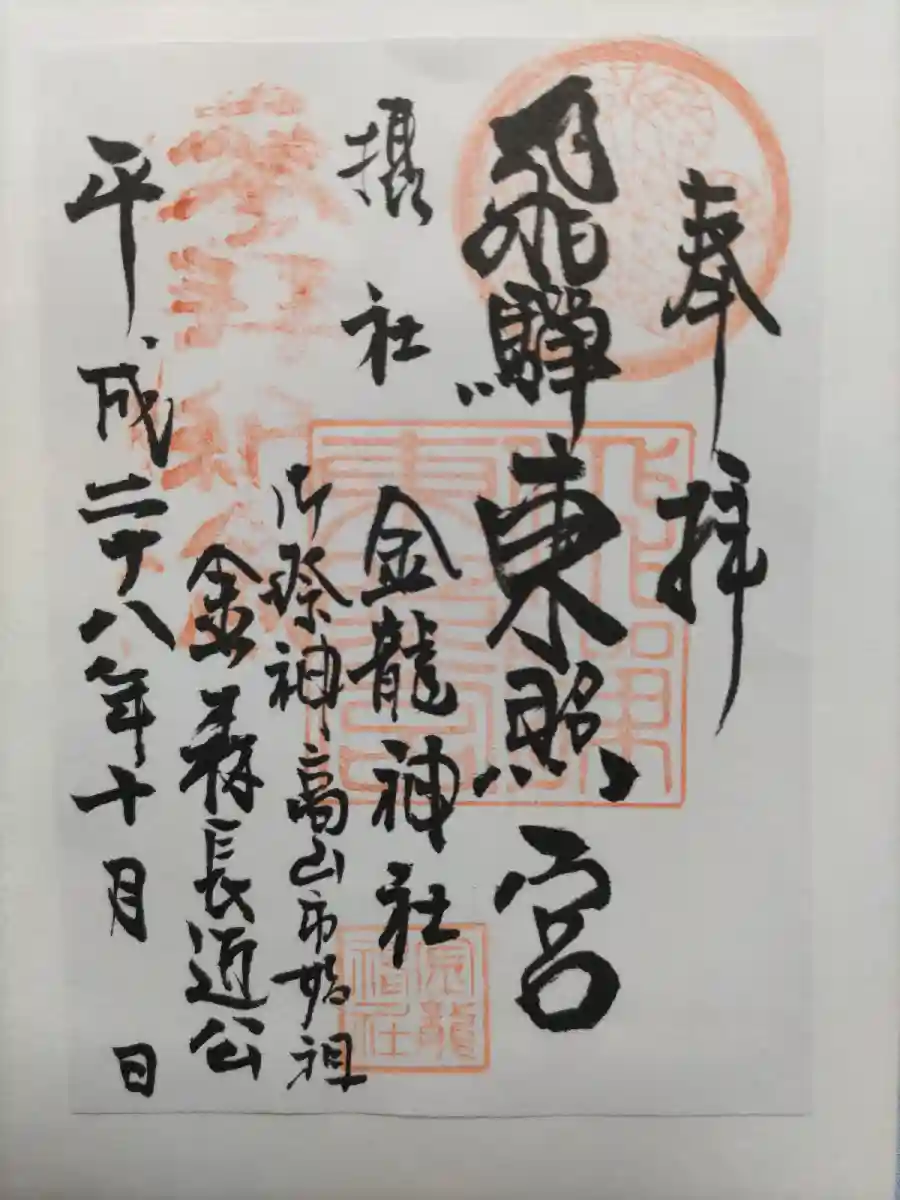 奉拝
飛騨東照宮
摂社
金龍神社
御祭神 高山市始祖
金森長近公
平成二十八年十月 日
金龍神社